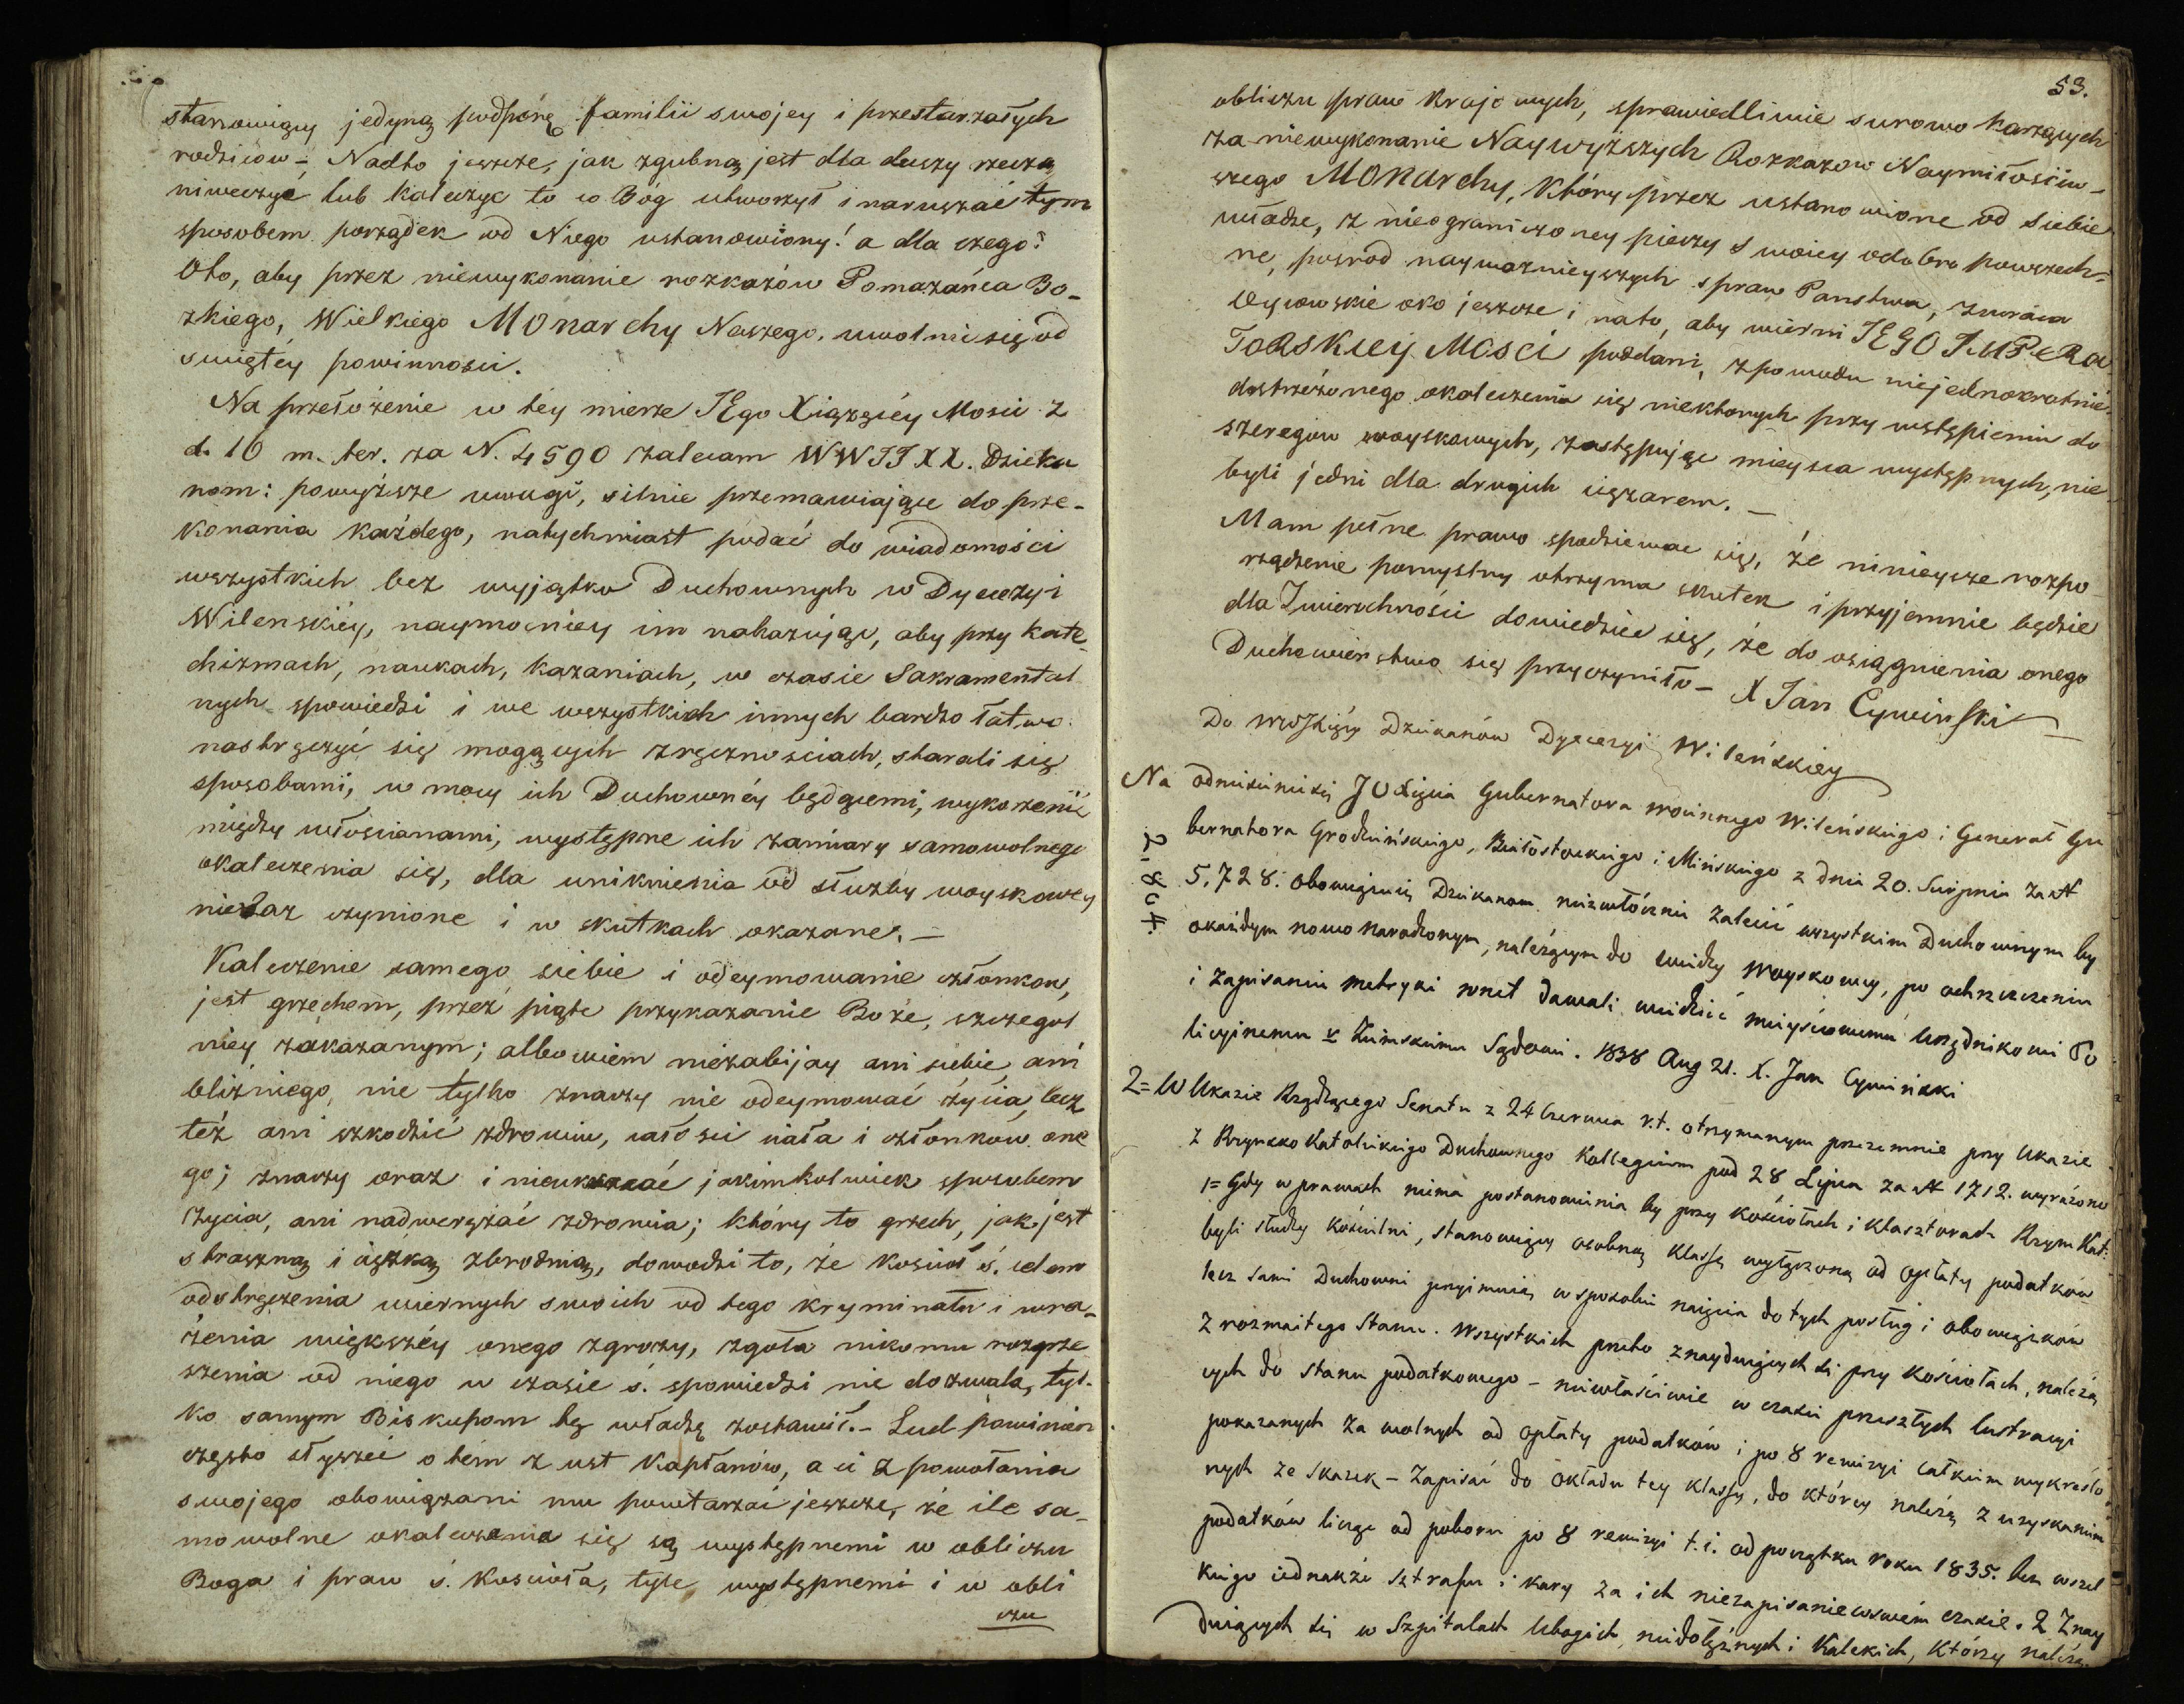 stanowiący jedyną podporę familii swojey i przestarzałych
rodzicow – Nadto jeszcze, jak zgubną jest dla duszy rzeczą
niweczyć lub kaleczyc to co Bóg utworzył i naruszać tym
sposobem porządek od Niego ustanowiony! a dla czego?
Oto, aby przez niewykonanie rozkazów Pomazańca Bo-
zkiego, Wielkiego Monarchy Naszego, uwolnić się od
swiętéy powinnosci.
Na przełożenie w téy mierze JEgo Xiążęcéy Mosci z
d. 10 m. ter. za N. 4590 zalecam WWJJXX. Dzieka
nom: powyższe uwagi, silnie przemawiające do prze-
konania każdego, natychmiast podać do wiadomości
wszystkich bez wyjątku Duchownych w Dyecezyi
Wilenskiéy, naymocniéy im nakazując, aby przy kate-
chizmach, naukach, kazaniach, w czasie Sakramental
nych spowiedzi i we wszystkich innych bardzo łatwo
nastręczyć się mogących zręcznościach, starali się
sposobami, w mocy ich Duchownéy będącemi, wykorzenić
między włoscianami, występne ich zamiary samowolnego
okaleczenia się, dla uniknienia od służby woyskowey
nieraz czynione i w skutkach okazane. –
Kaleczenie samego siebie i odeymowanie członkow,
jest grzechem, przez piąte przykazanie Boże, szczegol
niéy zakazanym; albowiem niezabijay ani siebie ani
bliźniego, nie tylko znaczy nie odeymować życia, lecz
też ani szkodzić zdrowiu, całosci ciała i członków one
go; znaczy oraz i nieukracać jakimkolwiek sposobem
życia, ani nadwerężać zdrowia; który to grzech, jak jest
straszną i ciężką zbrodnią, dowodzi to, że Kosciół ś. celem
odstręczenia wiernych swoich od tego kryminału i wra-
żenia większéy onego zgrozy, zgoła nikomu rozgrze
szenia od niego w czasie ś. spowiedzi nie dozwala, tyl-
ko samym Biskupom tę władzę zostawił. – Lud powinien
często słyszeć o tém z ust Kapłanów, a ci z powołania
swojego obowiązani mu powtarzać jeszcze, że ile sa-
mowolne okaleczenia się są występnemi w obliczu
Boga i praw ś. Kosciola, tyle występnemi i w obli
czu
53.
obliczu praw krajowych, sprawiedliwie surowo karzących
za niewykonanie Naywyższych Rozkazow Naymiłosciw-
szego Monarchy, który przez ustanowione od siebie
władze, z nieograniczoney pieczy swoiey o dobro powszech-
ne, posrod naywaznieyszych spraw Panstwa, zwraca
Oycowskie oko jeszcze i na to, aby wierni JEGO IMPeRa
ToRSKiey Mosci poddani, z powodu niejednokrotnie
dostrzeżonego okaleczenia się niektorych przy wstąpieniu do
szeregow woyskowych, zastępując mieysca występnych, nie
byli jedni dla drugich ciężarem. –
Mam pełne prawo spodziewac się, że ninieysze rozpo-
rządzenie pomyslny otrzyma skutek i przyjemnie będzie
dla Zwierzchności dowiedzieć się, że do osiągnienia onego
Duchowieństwo się przyczyniło – X Jan Cywinski
Do WWJXięży Dziekanów Dyecezyi Wileńskiey
Na odniesienie się JOXięcia Gubernatora woiennego Wileńskiego i Generał Gu
bernatora Grodzieńskiego, Białostockiego i Mińskiego z dnia 20. Sierpnia za N
2,804.
5,728. obowięzuię Dziekanom niezwłócznie zalecić wszystkim Duchownym by
okażdym nowo narodzonym, należącym do wiedzy woyskowey, po ochrzczeniu
i zapisaniu metryki wnet dawali wiedzieć mieyscowemu Urzędnikowi Po
licyinemu v Ziemskiemu Sądowi. 1838 Aug 21. X. Jan Cywiński
2= W Ukazie Rządzącego Senatu z 24 Czerwca r.t. otrzymanym przezemnie przy Ukazie
z Rzymsko Katolickiego Duchownego Kollegium pod 28 Lipca za N 1712. wyrażono
1= Gdy w prawach niema postanowienia by przy kościołach i klasztorach Rzym Kat:
byli słudzy kościelni, stanowiący osobną klassę wyłączoną od opłaty podatków
lecz sami Duchowni przyimuią w sposobie naięcia do tych posług i obowiązków
z rozmaitego Stanu. Wszystkich przeto znayduiących się przy kościołach, należą
cych do stanu podatkowego – niewłaściwie w czasie przeszłych lustracyi
pokazanych za wolnych od opłaty podatków i po 8 rewizyi całkiem wykreślo
nych ze skazek – zapisać do okładu tey klassy, do którey należą z uzyskaniem
podatków licząc od poboru po 8 rewizyi t.i. od początku roku 1835. bez wszel
kiego iednakże sztrafu i kary za ich niezapisanie w swém czasie. 2 Znay
duiących się w Szpitalach Ubogich, niedołężnych i Kalekich, którzy należą